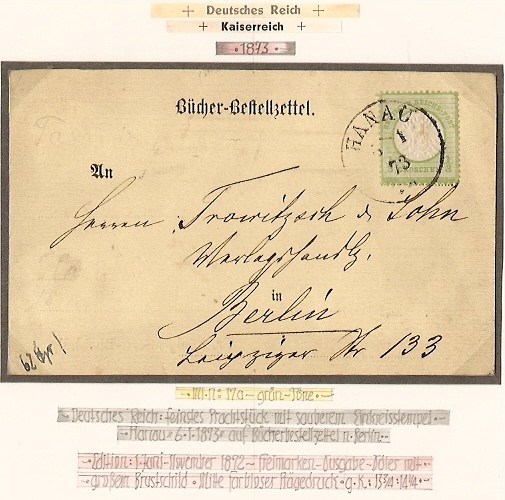 + Deutsches Reich +
+ Kaiserreich +
• 1873 •
Bücher-Bestellzettel.
HANAU
1
73
An
Herren Trowitzsch & Sohn
Verlagshandlg.
in
Berlin
Leipziger Str 133
Mi.n: 17a - grün-Töne
Deutsches Reich • feinstes Prachtstück mit sauberem Einkreisstempel
• Hanau • 6.1.1873 • auf Bücherbestellzettel n. Berlin •
Edition: 1. Juni-November 1872 - Freimarken-Ausgabe-Adler mit
großem Brustschild • Mitte farbloser Prägedruck • g.K: